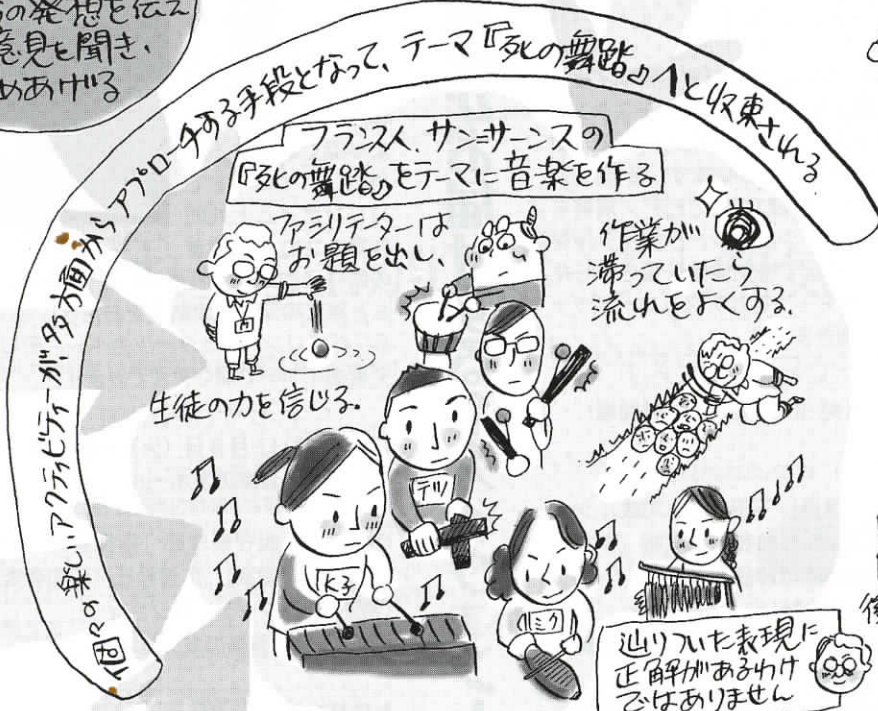 の発想を伝え
意見を聞き、
めあげる
個々の楽しいアクティビティーが、多方面からアプローチする手段となって、テーマ『死の舞踏』へと収束される
フランス人、サン=サーンスの
『死の舞踏』をテーマに音楽を作る
ファシリテーターは
お題を出し、
作業が
滞っていたら
流れをよくする。
生徒の力を信じる。
テツ
K子
ミク
辿りついた表現に
正解があるわけ
ではありません